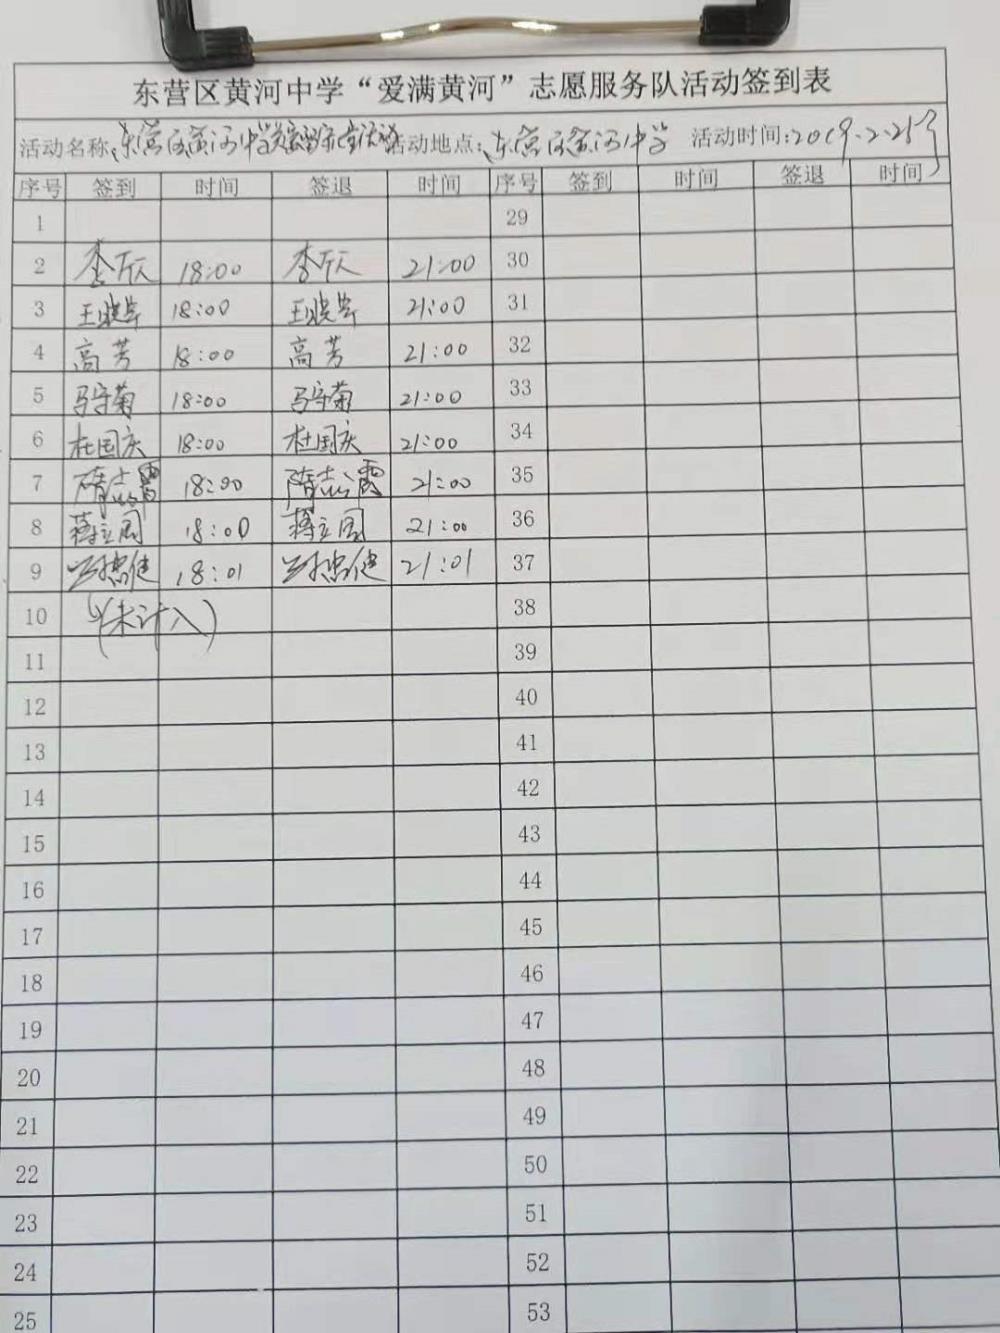 东营区黄河中学“爱满黄河”志愿服务队活动签到表
活动名称:东营区黄河中学 活动地点:东营区黄河中学 活动时间:2019.2.25
序号 签到 时间 签退 时间 序号 签到 时间 签退 时间
1 29
2 李欣 18:00 李欣 21:00 30
3 王晓 18:00 王晓 21:00 31
4 高芳 18:00 高芳 21:00 32
5 马守菊 18:00 马守菊 21:00 33
6 杜国庆 18:00 杜国庆 21:00 34
7 隋志霞 18:00 隋志霞 21:00 35
8 蒋立国 18:00 蒋立国 21:00 36
9 18:01 21:01 37
10 (未计入) 38
11 39
12 40
13 41
14 42
15 43
16 44
17 45
18 46
19 47
20 48
21 49
22 50
23 51
24 52
25 53